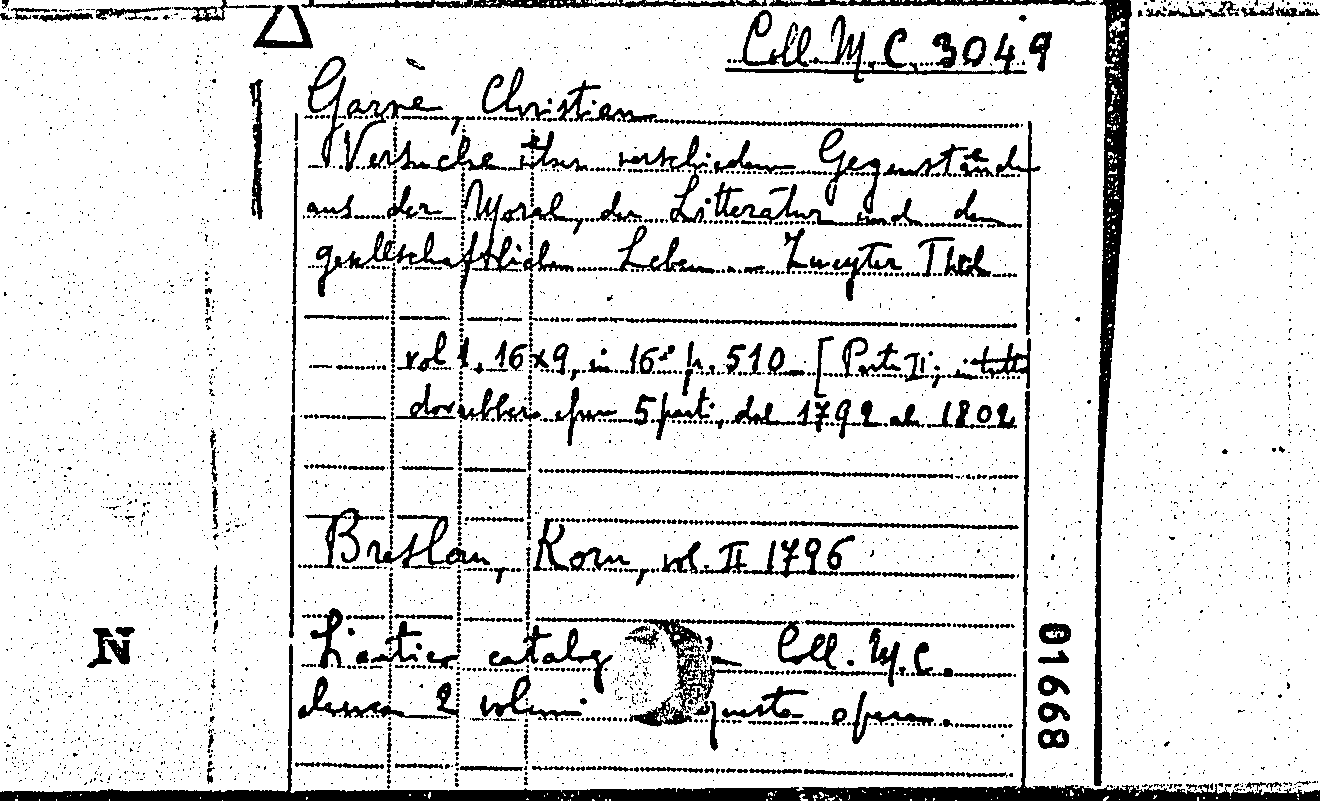 Coll. M. C. 3049
Garve, Christian
Versuche über verschiedene Gegenstände
aus der Moral, der Litteratur und dem
gesellschaftlichen Leben. _ Zweyter Theil
vol 1. 16x9, in 16° p. 510 _ [Parte II;
dovrebbero 5 parti, dal 1792 al 1802
Breslau, Korn, vol. II 1796
L'antico catalog Coll. M.C.
2 volumi questa opera.
N
01668